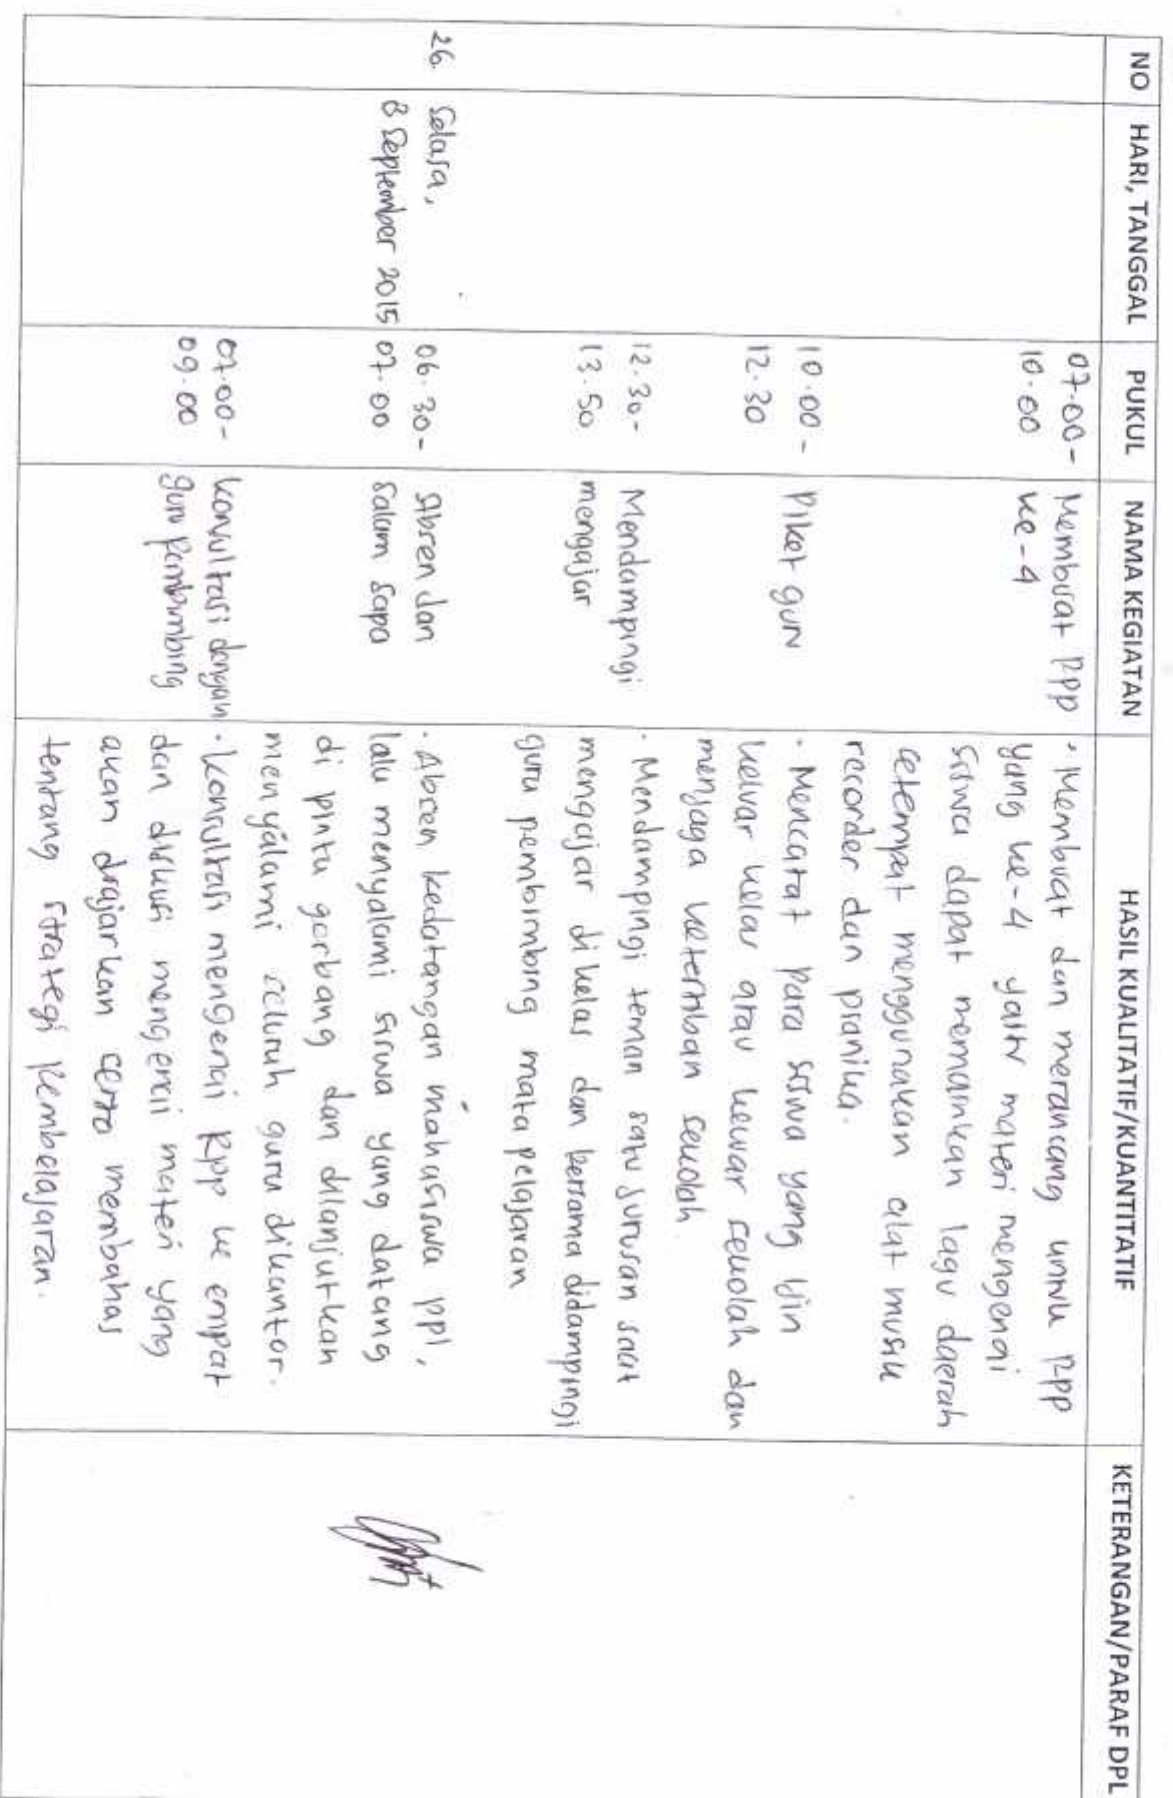 NO HARI, TANGGAL PUKUL NAMA KEGIATAN HASIL KUALITATIF/KUANTITATIF KETERANGAN/PARAF DPL
07.00- Membuat RPP · Membuat dan merancang untuk RPP
10.00 ke-4 yang ke-4 yaitu materi mengenai
siswa dapat memainkan lagu daerah
setempat menggunakan alat musik
recorder dan pianika.
10.00- Piket guru · Mencatat para siswa yang izin
12.30 keluar kelas atau keluar sekolah dan
menjaga ketertiban sekolah.
12.30- Mendampingi · Mendampingi teman satu jurusan saat
13.50 mengajar mengajar di kelas dan bersama didampingi
guru pembimbing mata pelajaran
26. Selasa, 06.30- Absen dan · Absen kedatangan mahasiswa ppl,
8 September 2015 07.00 Salam Sapa lalu menyalami siswa yang datang
di pintu gerbang dan dilanjutkan
menyalami seluruh guru dikantor.
07.00- konsultasi dengan · konsultasi mengenai Rpp ke empat
09.00 guru Pembimbing dan diskusi mengenai materi yang
akan diajarkan serta membahas
tentang strategi Pembelajaran.